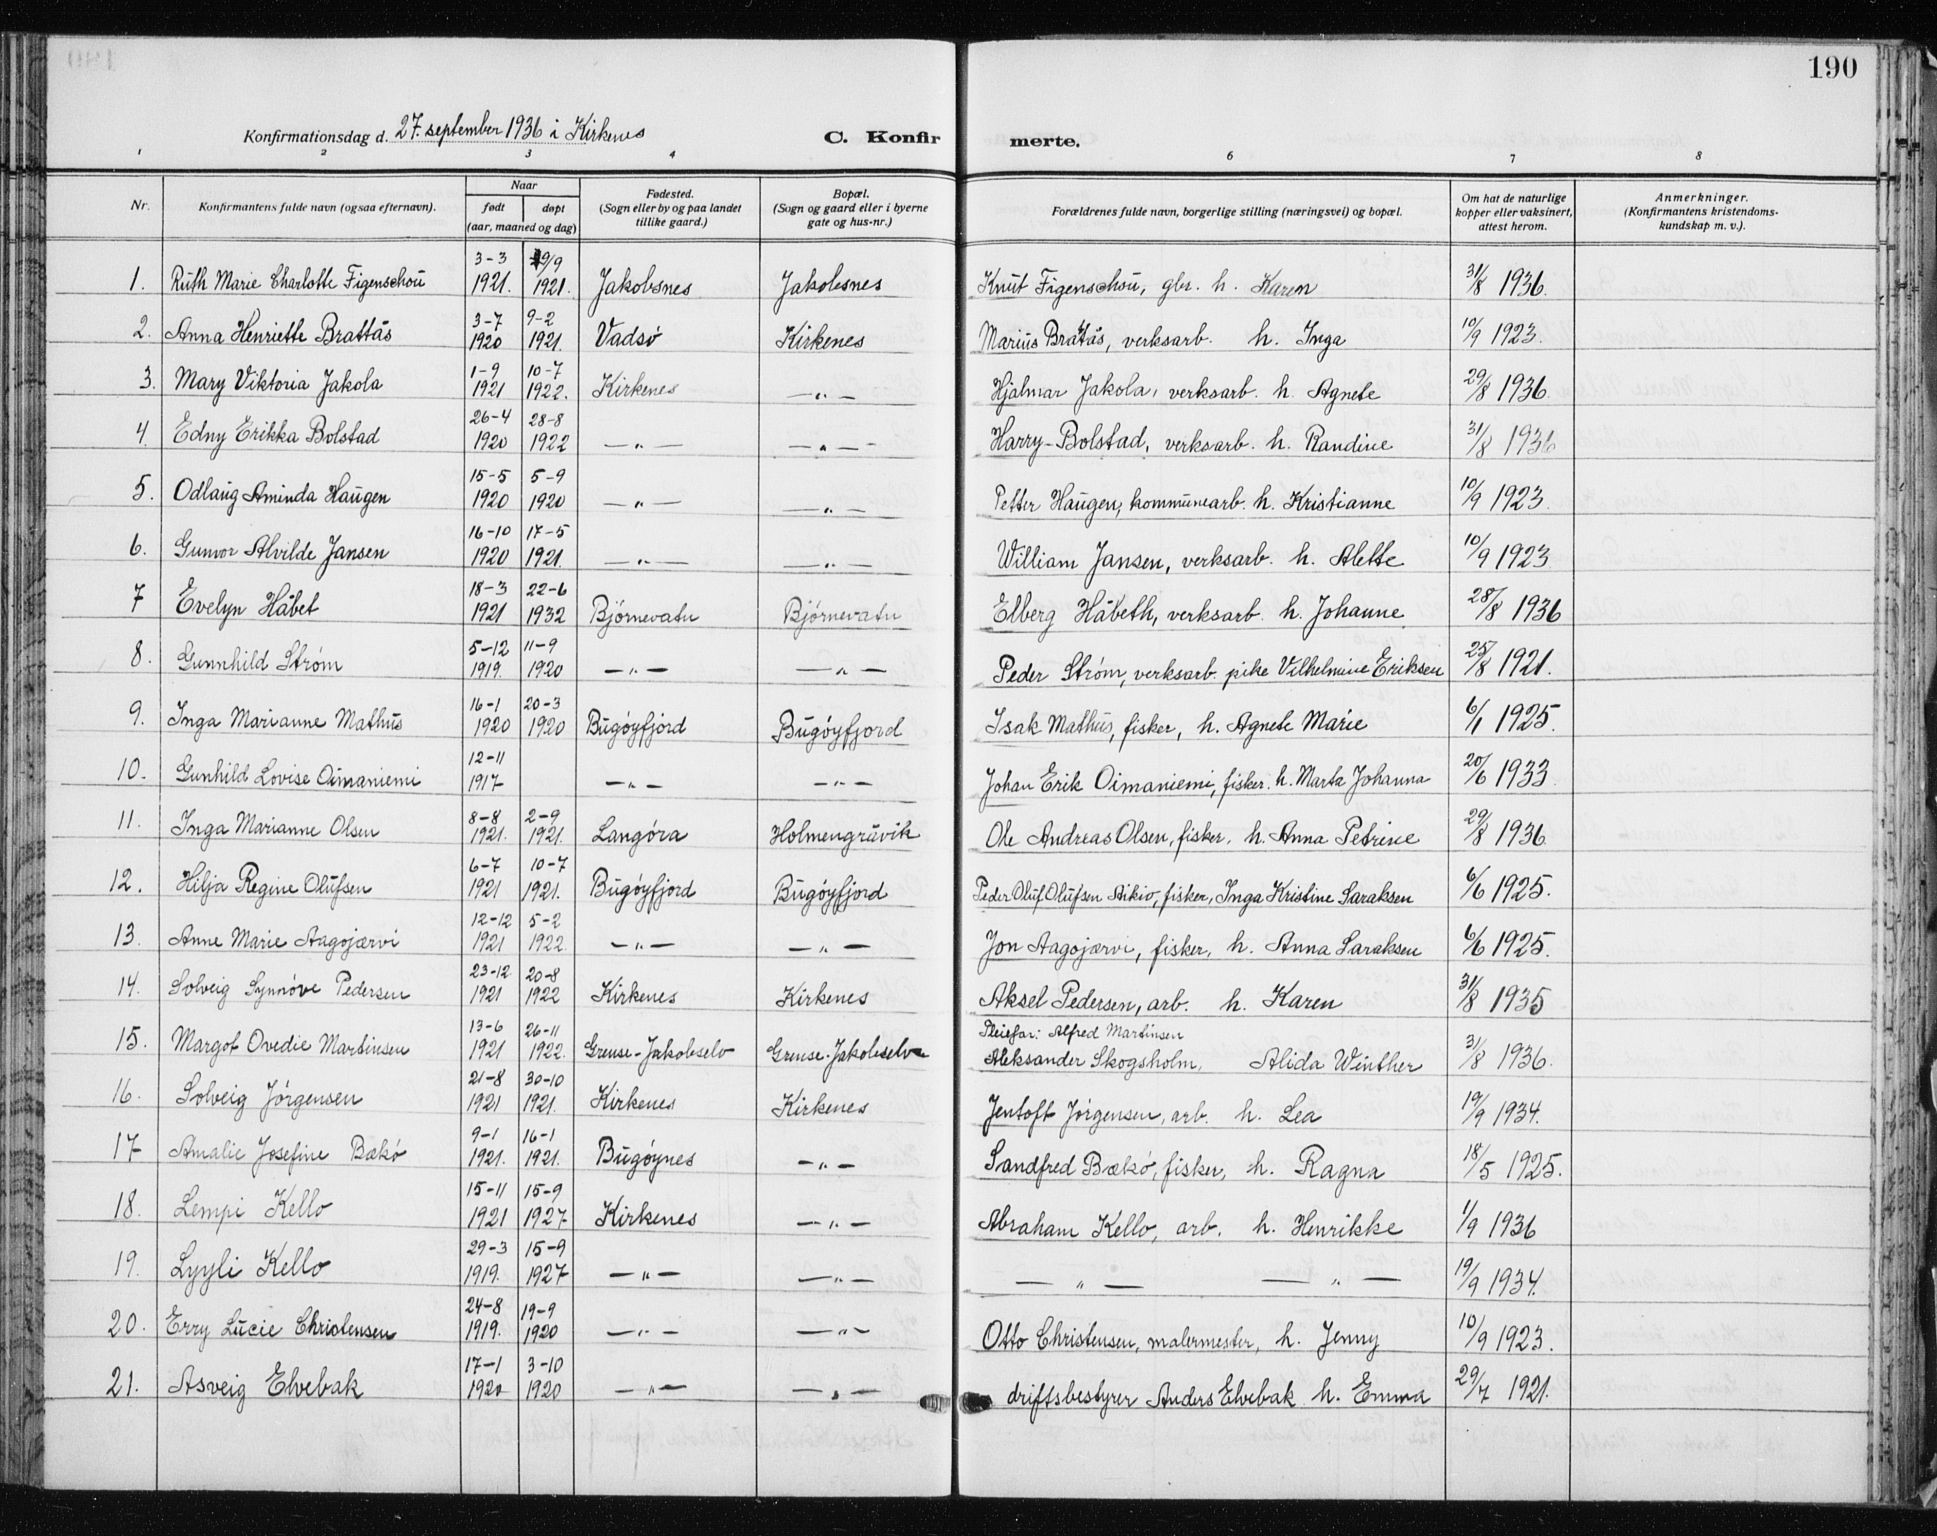 190
Konfirmationsdag d. 27. september 1936 i Kirkenes C. Konfirmerte.
1 2 3 4 6 7 8
Nr. Konfirmantens fulde navn (ogsaa efternavn). Naar født døpt (aar, maaned og dag) Fødested. (Sogn eller by og paa landet tillike gaard.) Bopæl. (Sogn og gaard eller i byerne gate og hus-nr.) Forældrenes fulde navn, borgerlige stilling (næringsvei) og bopæl. Om hat de naturlige kopper eller vaksinert, attest herom. Anmerkninger. (Konfirmantens kristendomskundskap m. v.).
1. Ruth Marie Charlotte Figenschou 3-3 1921. 9/9 1921. Jakobsnes Jakobsnes Knut Figenschou, gbr. h. Karen 31/8 1936.
2. Anna Henriette Brattås 3-7 1920 9-2 1921. Vadsø Kirkenes Marius Brattås, verksarb. h. Inga 10/9 1923.
3. Mary Viktoria Jakola 1-9 1921 10-7 1922. Kirkenes —„— Hjalmar Jakola, verksarb. h. Agnete 29/8 1936.
4. Edny Erikka Bolstad 26-4 1920 28-8 1922 —„— —„— Harry Bolstad, verksarb. h. Randine 31/8 1936
5. Odlaug Aminda Haugen 15-5 1920 5-9 1920 —„— —„— Petter Haugen, kommunearb. h. Kristianne 10/9 1923.
6. Gunvor Alvilde Jansen 16-10 1920 17-5 1921. —„— —„— William Jansen, verksarb. h. Alette 10/9 1923
7 Evelyn Håbet 18-3 1921 22-6 1932 Bjørnevatn Bjørnevatn Elberg Håbeth, verksarb. h. Johanne 28/8 1936
8. Gunnhild Strøm 5-12 1919. 11-9 1920 —„— —„— Peder Strøm, verksarb. pike Vilhelmine Eriksen 25/8 1921.
9. Inga Marianne Mathus 16-1 1920 20-3 1920 Bugøyfjord Bugøyfjord Isak Mathus, fisker, h. Agnete Marie 6/1 1925.
10. Gunhild Lovise Oimaniemi 12-11 1917 —„— —„— Johan Erik Oimaniemi, fisker. h. Marta Johanna 20/6 1933.
11. Inga Marianne Olsen 8-8 1921. 2-9 1921. Langøra Holmengråvik Ole Andreas Olsen, fisker, h. Anna Petrine 29/8 1936
12. Hilja Regine Olufsen 6-7 1921 10-7 1921. Bugøyfjord Bugøyfjord Peder Oluf Olufsen Aikio, fisker, Inga Kristine Saraksen 6/6 1925.
13. Anne Marie Aagojærvi 12-12 1921 5-2 1922 —„— —„— Jon Aagojærvi, fisker, h. Anna Saraksen 6/6 1925.
14. Solveig Synnøve Pedersen 23-12 1921 20-8 1922 Kirkenes Kirkenes Aksel Pedersen, arb. h. Karen 31/8 1935
15. Margot Ovedie Martinsen 13-6 1921 26-11 1922. Grense-Jakobselv Grense-Jakobselv Pleiefar: Alfred Martinsen
Aleksander Skogsholm, Alida Winther 31/8 1936.
16. Solveig Jørgensen 21-8 1921 30-10 1921. Kirkenes Kirkenes Jentoft Jørgensen, arb. h. Lea 19/9 1934.
17 Amalie Josefine Bækø 9-1 1921. 16-1 1921. Bugøynes —„— Sandfred Bækø, fisker, h. Ragna 18/5 1925.
18. Lempi Kello 15-11 1921 15-9 1927 Kirkenes —„— Abraham Kello, arb. h. Henrikke 1/9 1936
19. Lyyli Kello 29-3 1919. 15-9 1927 —„— —„— —„— —„— 19/9 1934.
20. Erry Lucie Christensen 24-8 1919. 19-9 1920 —„— —„— Otto Christensen, malermester, h. Jenny 10/9 1923.
21. Asveig Elvebak 17-1 1920 3-10 1920 —„— —„— driftsbestyrer Anders Elvebak h. Emma 29/7 1921.